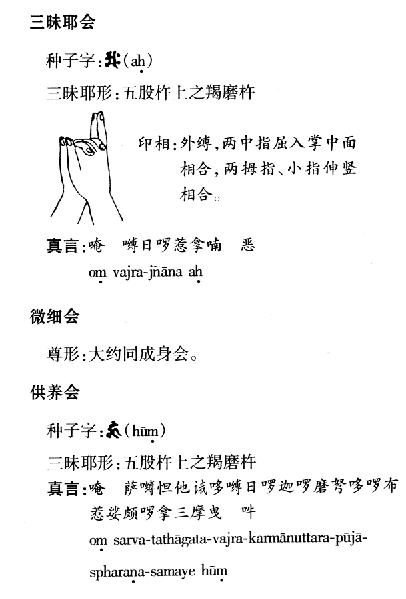 三昧耶会
种子字:𑖀𑖾(aḥ)
三昧耶形:五股杵上之羯磨杵
印相:外缚,两中指屈入掌中面
相合,两拇指、小指伸竖
相合。
真言:唵 嚩日啰惹拿喃 恶
oṃ vajra-jñāna aḥ
微细会
尊形:大约同成身会。
供养会
种子字:(hūṃ)
三昧耶形:五股杵上之羯磨杵
真言:唵 萨嚩怛他誐哆嚩日啰迦啰磨努哆啰布
惹娑颇啰拿三摩曳 吽
oṃ sarva-tathāgata-vajra-karmānuttara-pūjā-
spharaṇa-samaye hūṃ